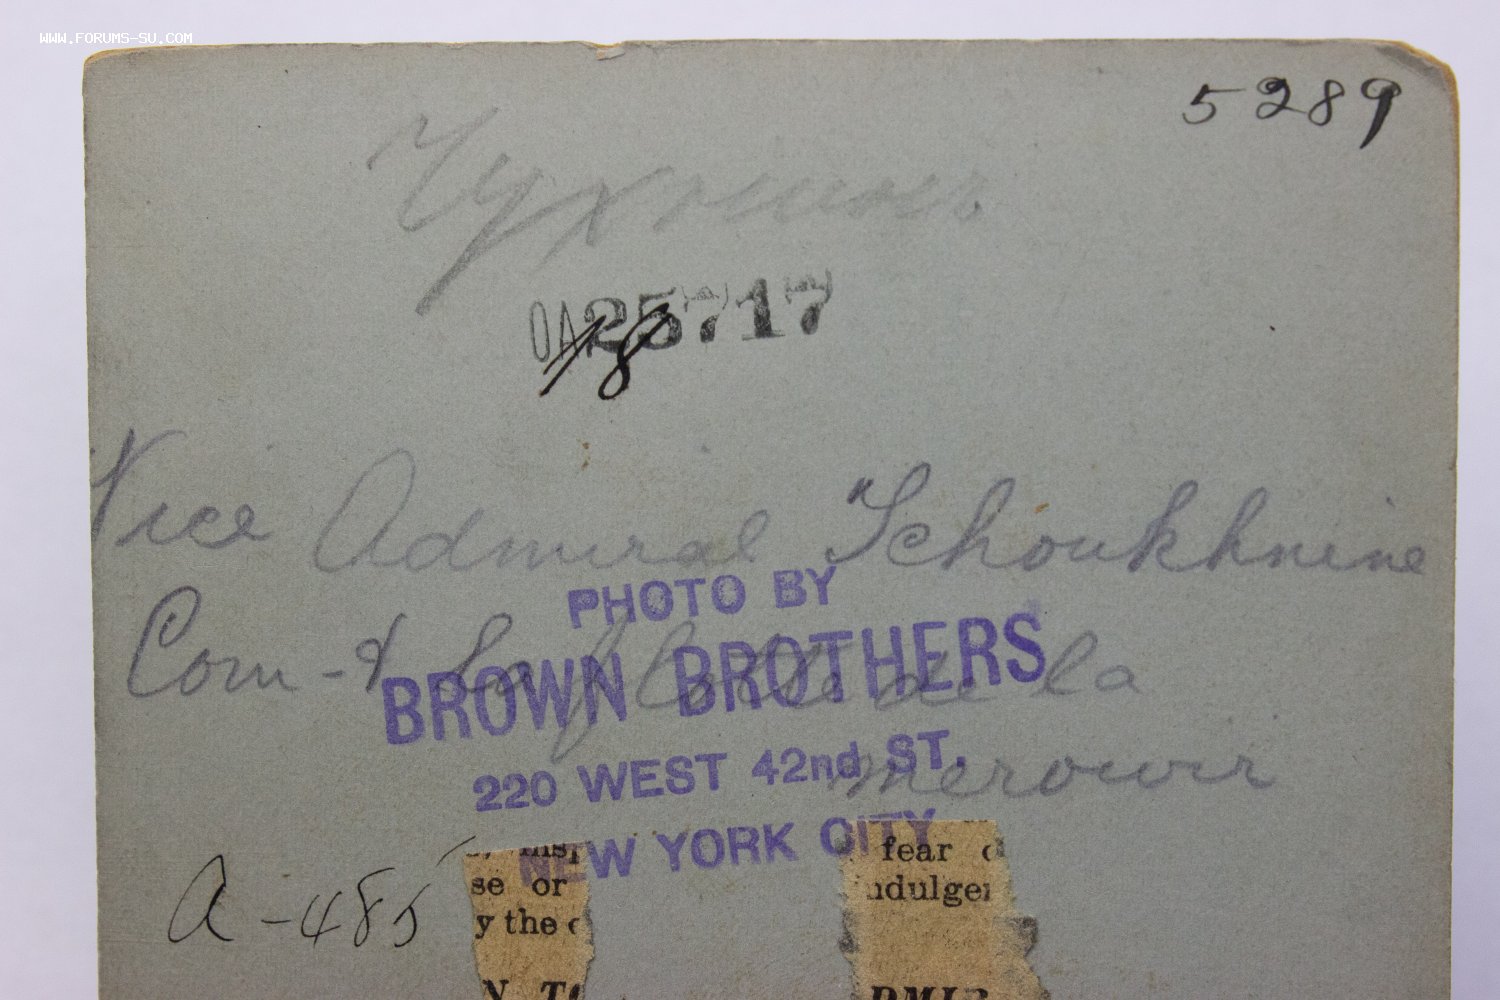 WWW.FORUMS-SU.COM
5289
OA25717
18
Vice Admiral Schoukhnine
Com-t La flotte de la
merowir
PHOTO BY
BROWN BROTHERS
220 WEST 42nd ST.
NEW YORK CITY
A-485
se or
y the
fear
ndulger
DMIR